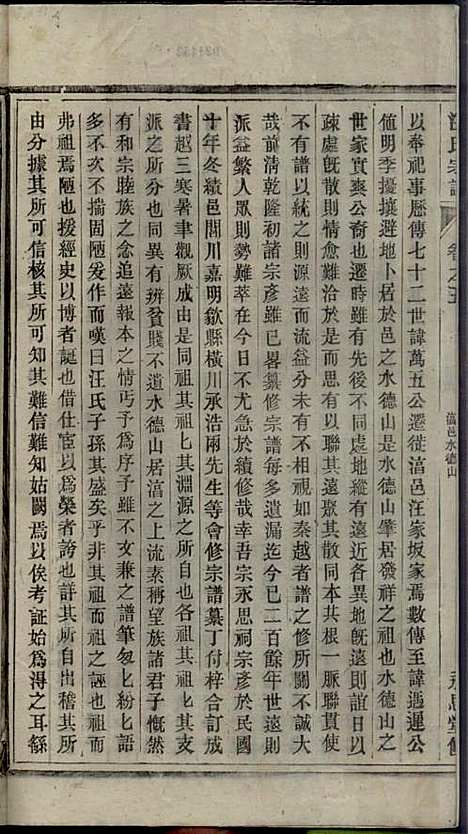 汪氏宗譜
卷之五
湻邑水德山
永思堂修
以奉祀事歷傳七十二世諱萬五公遷徙湻邑汪家坂家焉數傳至諱遇遲公
値明季擾攘避地卜居於邑之水德山是水德山肇居發祥之祖也水德山之
世家實奕公裔也遷時雖有先後不同處地縱有遠近各異地旣遠則誼日以
疎處旣散則情愈難洽於是而思有以聯其遠聚其散同本共根一脈聯貫使
不有譜以統之則宗遠而流益分未有不相視如秦越者譜之修所關不誠大
哉前清乾隆初諸宗彥雖已畧纂修宗譜每多遺漏迄今已二百餘年世遠
派益繁人衆則勢難萃在今日不尤急於續修哉幸吾宗永思祠宗彥於民國
十年冬績邑閏川嘉明歙縣橫川承浩兩先生等會修宗譜纂丁付梓合訂成
書越三寒暑聿觀厥成由是同祖其祖其淵源之所自也各祖其祖其支
派之所分也同具有辨貧賤不遺水德山居湻之上流素稱望族諸君子慨然
有和宗睦族之念追遠報本之情丐予為序予雖不文兼之譜筆匆匕紛匕語
多不次不揣固陋爰作而嘆曰汪氏子孫其盛矣乎非其祖而祖之誣也祖而
弗祖焉陋也援經史以博者誕也借仕宦以為榮者誇也詳其所自出稽其所
由分據其所可信核其所可知其難信難知姑闕焉以俟考証始為得之耳繇